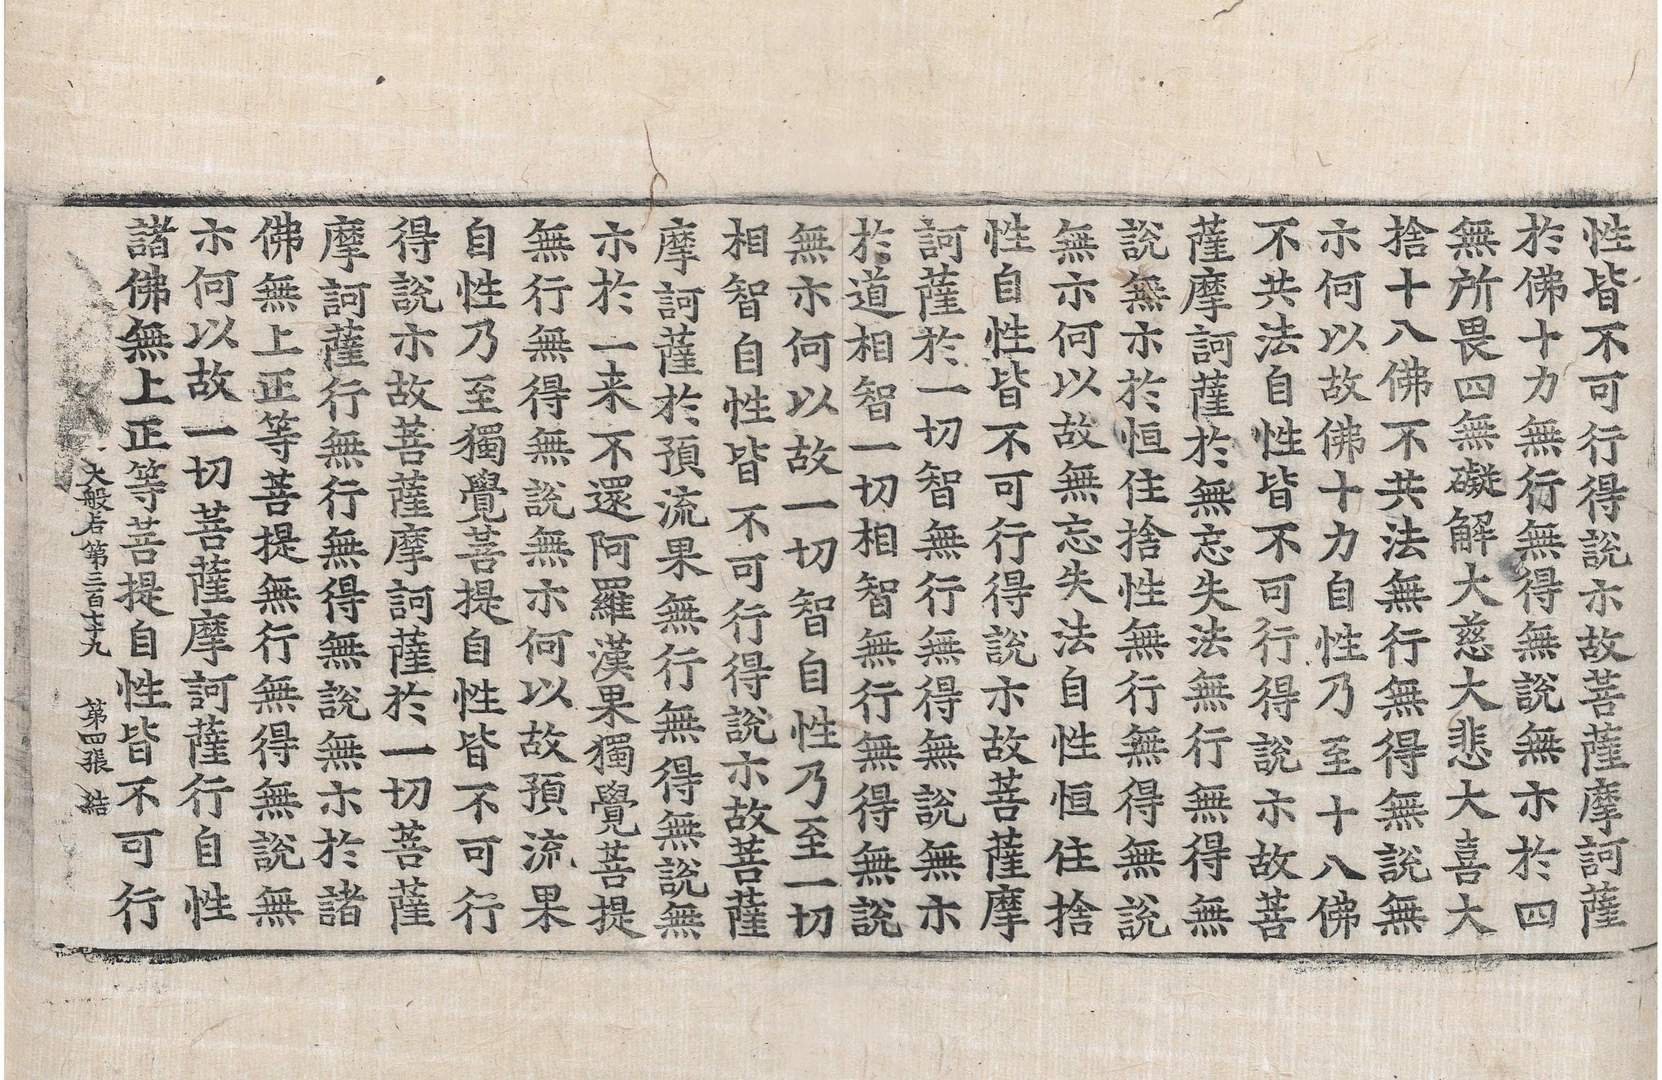 性皆不可行得說示故菩薩摩訶薩
於佛十力無行無得無說無示於四
無所畏四無礙解大慈大悲大喜大
捨十八佛不共法無行無得無說無
示何以故佛十力自性乃至十八佛
不共法自性皆不可行得說示故菩
薩摩訶薩於無忘失法無行無得無
說無示於恒住捨性無行無得無說
無示何以故無忘失法自性恒住捨
性自性皆不可行得說示故菩薩摩
訶薩於一切智無行無得無說無示
於道相智一切相智無行無得無說
無示何以故一切智自性乃至一切
相智自性皆不可行得說示故菩薩
摩訶薩於預流果無行無得無說無
示於一来不還阿羅漢果獨覺菩提
無行無得無說無示何以故預流果
自性乃至獨覺菩提自性皆不可行
得說示故菩薩摩訶薩於一切菩薩
摩訶薩行無行無得無說無示於諸
佛無上正等菩提無行無得無說無
示何以故一切菩薩摩訶薩行自性
諸佛無上正等菩提自性皆不可行
大般若第三百七十九 第四張 結